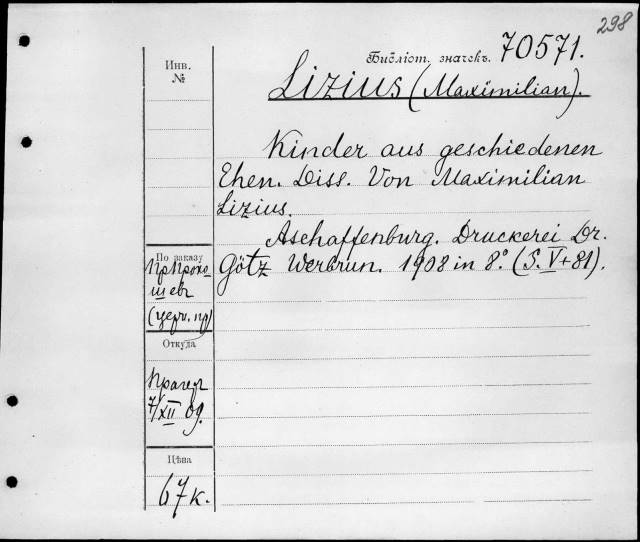 298
Библіот. значекъ. 70571.
Инв.
№
Lizius (Maximilian).
Kinder aus geschiedenen
Ehen. Diss. Von Maximilian
Lizius.
Aschaffenburg. Druckerei Dr.
Götz Werbrun. 1908 in 8º (S. V+81).
По заказу
Пр Проко-
шевъ
(церк. пр)
Откуда
Прагеръ
7/XII 09.
Цѣна
67 к.